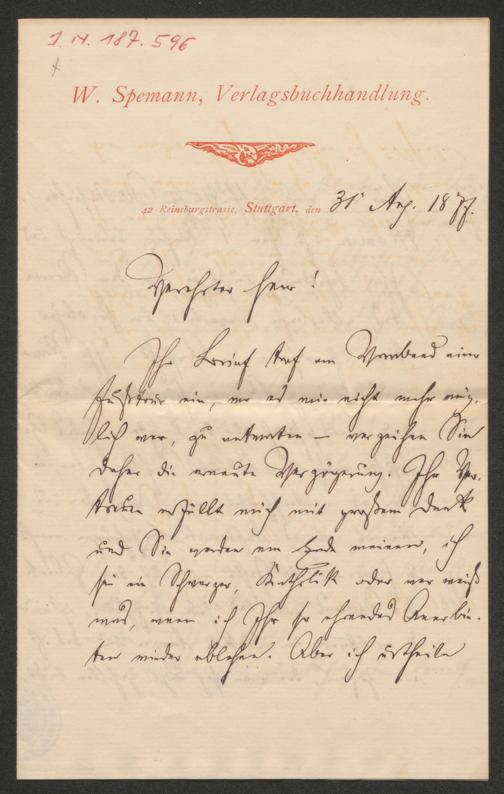 I. N. 187.596
W. Spemann, Verlagsbuchhandlung.
42 Reinsburgstrasse, Stuttgart, den 31 Aug. 1877.
Verehrter Herr!
Ihr Brief traf am Vorabend einer
Fußtour ein, wo es mir nicht mehr mög-
lich war, zu antworten – verzeihen Sie
daher die erneute Verzögerung. Ihr Ver-
trauen erfüllt mich mit großem Dank
und Sie werden am Ende meinen, ich
sei ein Schwarzer, Katholik oder wer weiß
was, wenn ich Ihr so ehrendes Anerbie-
ten wieder ablehne. Aber ich urtheile